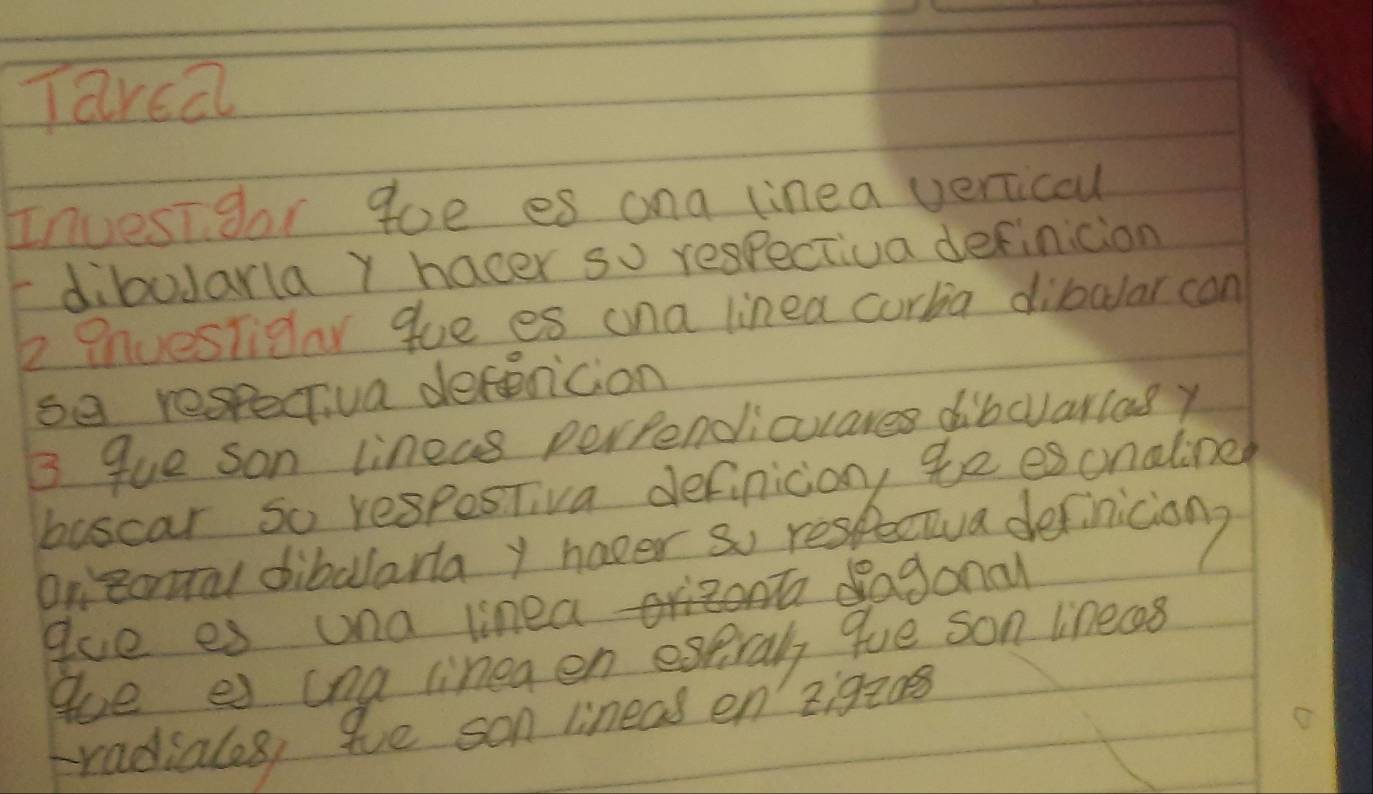 Tarea
Investigar que es una linea vertical
- dibujarla y hacer su respectiva definicion
2 investigar que es una linea curbia dibujar con
se respectiva definicion
3 que son lineas perpendiculares dibujarlas y
buscar su respestiva definicion, que es una linea
orizontal dibujarla y hacer su respectiva definicion,
que es una linea orizonta diagonal
que es una linea en espiral, que son lineas
-radiales, que son lineas en zigzas